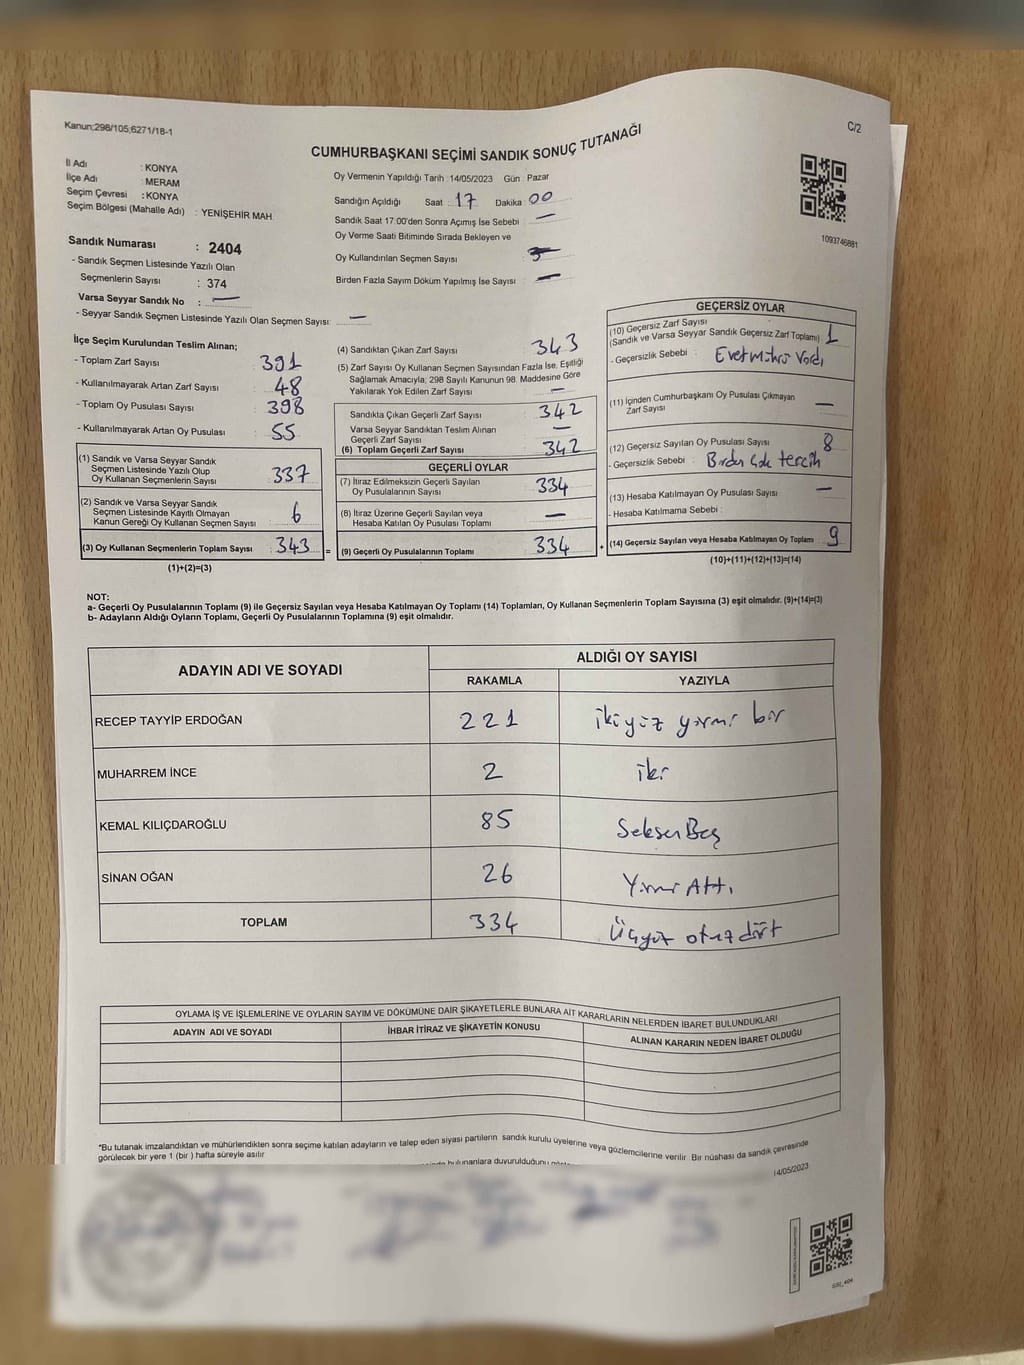 Kanun;298/105;6271/18-1
C/2
CUMHURBAŞKANI SEÇİMİ SANDIK SONUÇ TUTANAĞI
İl Adı : KONYA
İlçe Adı : MERAM
Seçim Çevresi : KONYA
Seçim Bölgesi (Mahalle Adı) : YENİŞEHİR MAH
Sandık Numarası : 2404
- Sandık Seçmen Listesinde Yazılı Olan
Seçmenlerin Sayısı : 374
Varsa Seyyar Sandık No : —
- Seyyar Sandık Seçmen Listesinde Yazılı Olan Seçmen Sayısı: —
Oy Vermenin Yapıldığı Tarih : 14/05/2023 Gün : Pazar
Sandığın Açıldığı Saat : 17 Dakika : 00
Sandık Saat 17:00'den Sonra Açımış İse Sebebi : —
Oy Verme Saati Bitiminde Sırada Bekleyen ve
Oy Kullandırılan Seçmen Sayısı :
Birden Fazla Sayım Döküm Yapılmış İse Sayısı : —
1093746881
İlçe Seçim Kurulundan Teslim Alınan;
- Toplam Zarf Sayısı : 391
- Kullanılmayarak Artan Zarf Sayısı : 48
- Toplam Oy Pusulası Sayısı : 398
- Kullanılmayarak Artan Oy Pusulası : 55
(1) Sandık ve Varsa Seyyar Sandık
Seçmen Listesinde Yazılı Olup
Oy Kullanan Seçmenlerin Sayısı : 337
(2) Sandık ve Varsa Seyyar Sandık
Seçmen Listesinde Kayıtlı Olmayan
Kanun Gereği Oy Kullanan Seçmen Sayısı : 6
(3) Oy Kullanan Seçmenlerin Toplam Sayısı : 343 =
(1)+(2)=(3)
(4) Sandıktan Çıkan Zarf Sayısı : 343
(5) Zarf Sayısı Oy Kullanan Seçmen Sayısından Fazla İse, Eşitliği
Sağlamak Amacıyla; 298 Sayılı Kanunun 98. Maddesine Göre
Yakılarak Yok Edilen Zarf Sayısı : —
Sandıkta Çıkan Geçerli Zarf Sayısı : 342
Varsa Seyyar Sandıktan Teslim Alınan
Geçerli Zarf Sayısı : —
(6) Toplam Geçerli Zarf Sayısı : 342
GEÇERLİ OYLAR
(7) İtiraz Edilmeksizin Geçerli Sayılan
Oy Pusulalarının Sayısı : 334
(8) İtiraz Üzerine Geçerli Sayılan veya
Hesaba Katılan Oy Pusulası Toplamı : —
(9) Geçerli Oy Pusulalarının Toplamı : 334 +
GEÇERSİZ OYLAR
(10) Geçersiz Zarf Sayısı
(Sandık ve Varsa Seyyar Sandık Geçersiz Zarf Toplamı) : 1
- Geçersizlik Sebebi : Evet Mührü Vardı
(11) İçinden Cumhurbaşkanı Oy Pusulası Çıkmayan
Zarf Sayısı : —
(12) Geçersiz Sayılan Oy Pusulası Sayısı : 8
- Geçersizlik Sebebi : Birden Çok tercih
(13) Hesaba Katılmayan Oy Pusulası Sayısı : —
- Hesaba Katılmama Sebebi :
(14) Geçersiz Sayılan veya Hesaba Katılmayan Oy Toplamı : 9
(10)+(11)+(12)+(13)=(14)
NOT:
a- Geçerli Oy Pusulalarının Toplamı (9) ile Geçersiz Sayılan veya Hesaba Katılmayan Oy Toplamı (14) Toplamları, Oy Kullanan Seçmenlerin Toplam Sayısına (3) eşit olmalıdır. (9)+(14)=(3)
b- Adayların Aldığı Oyların Toplamı, Geçerli Oy Pusulalarının Toplamına (9) eşit olmalıdır.
ADAYIN ADI VE SOYADI ALDIĞI OY SAYISI
RAKAMLA YAZIYLA
RECEP TAYYİP ERDOĞAN 221 ikiyüz yirmi bir
MUHARREM İNCE 2 iki
KEMAL KILIÇDAROĞLU 85 Seksen Beş
SİNAN OĞAN 26 Yirmi Altı
TOPLAM 334 Üçyüz otuz dört
OYLAMA İŞ VE İŞLEMLERİNE VE OYLARIN SAYIM VE DÖKÜMÜNE DAİR ŞİKAYETLERLE BUNLARA AİT KARARLARIN NELERDEN İBARET BULUNDUKLARI
ADAYIN ADI VE SOYADI İHBAR İTİRAZ VE ŞİKAYETİN KONUSU ALINAN KARARIN NEDEN İBARET OLDUĞU
*Bu tutanak imzalandıktan ve mühürlendikten sonra seçime katılan adayların ve talep eden siyasi partilerin sandık kurulu üyelerine veya gözlemcilerine verilir. Bir nüshası da sandık çevresinde
görülecek bir yere 1 (bir ) hafta süreyle asılır
bulunanlara duyurulduğunu
14/05/2023